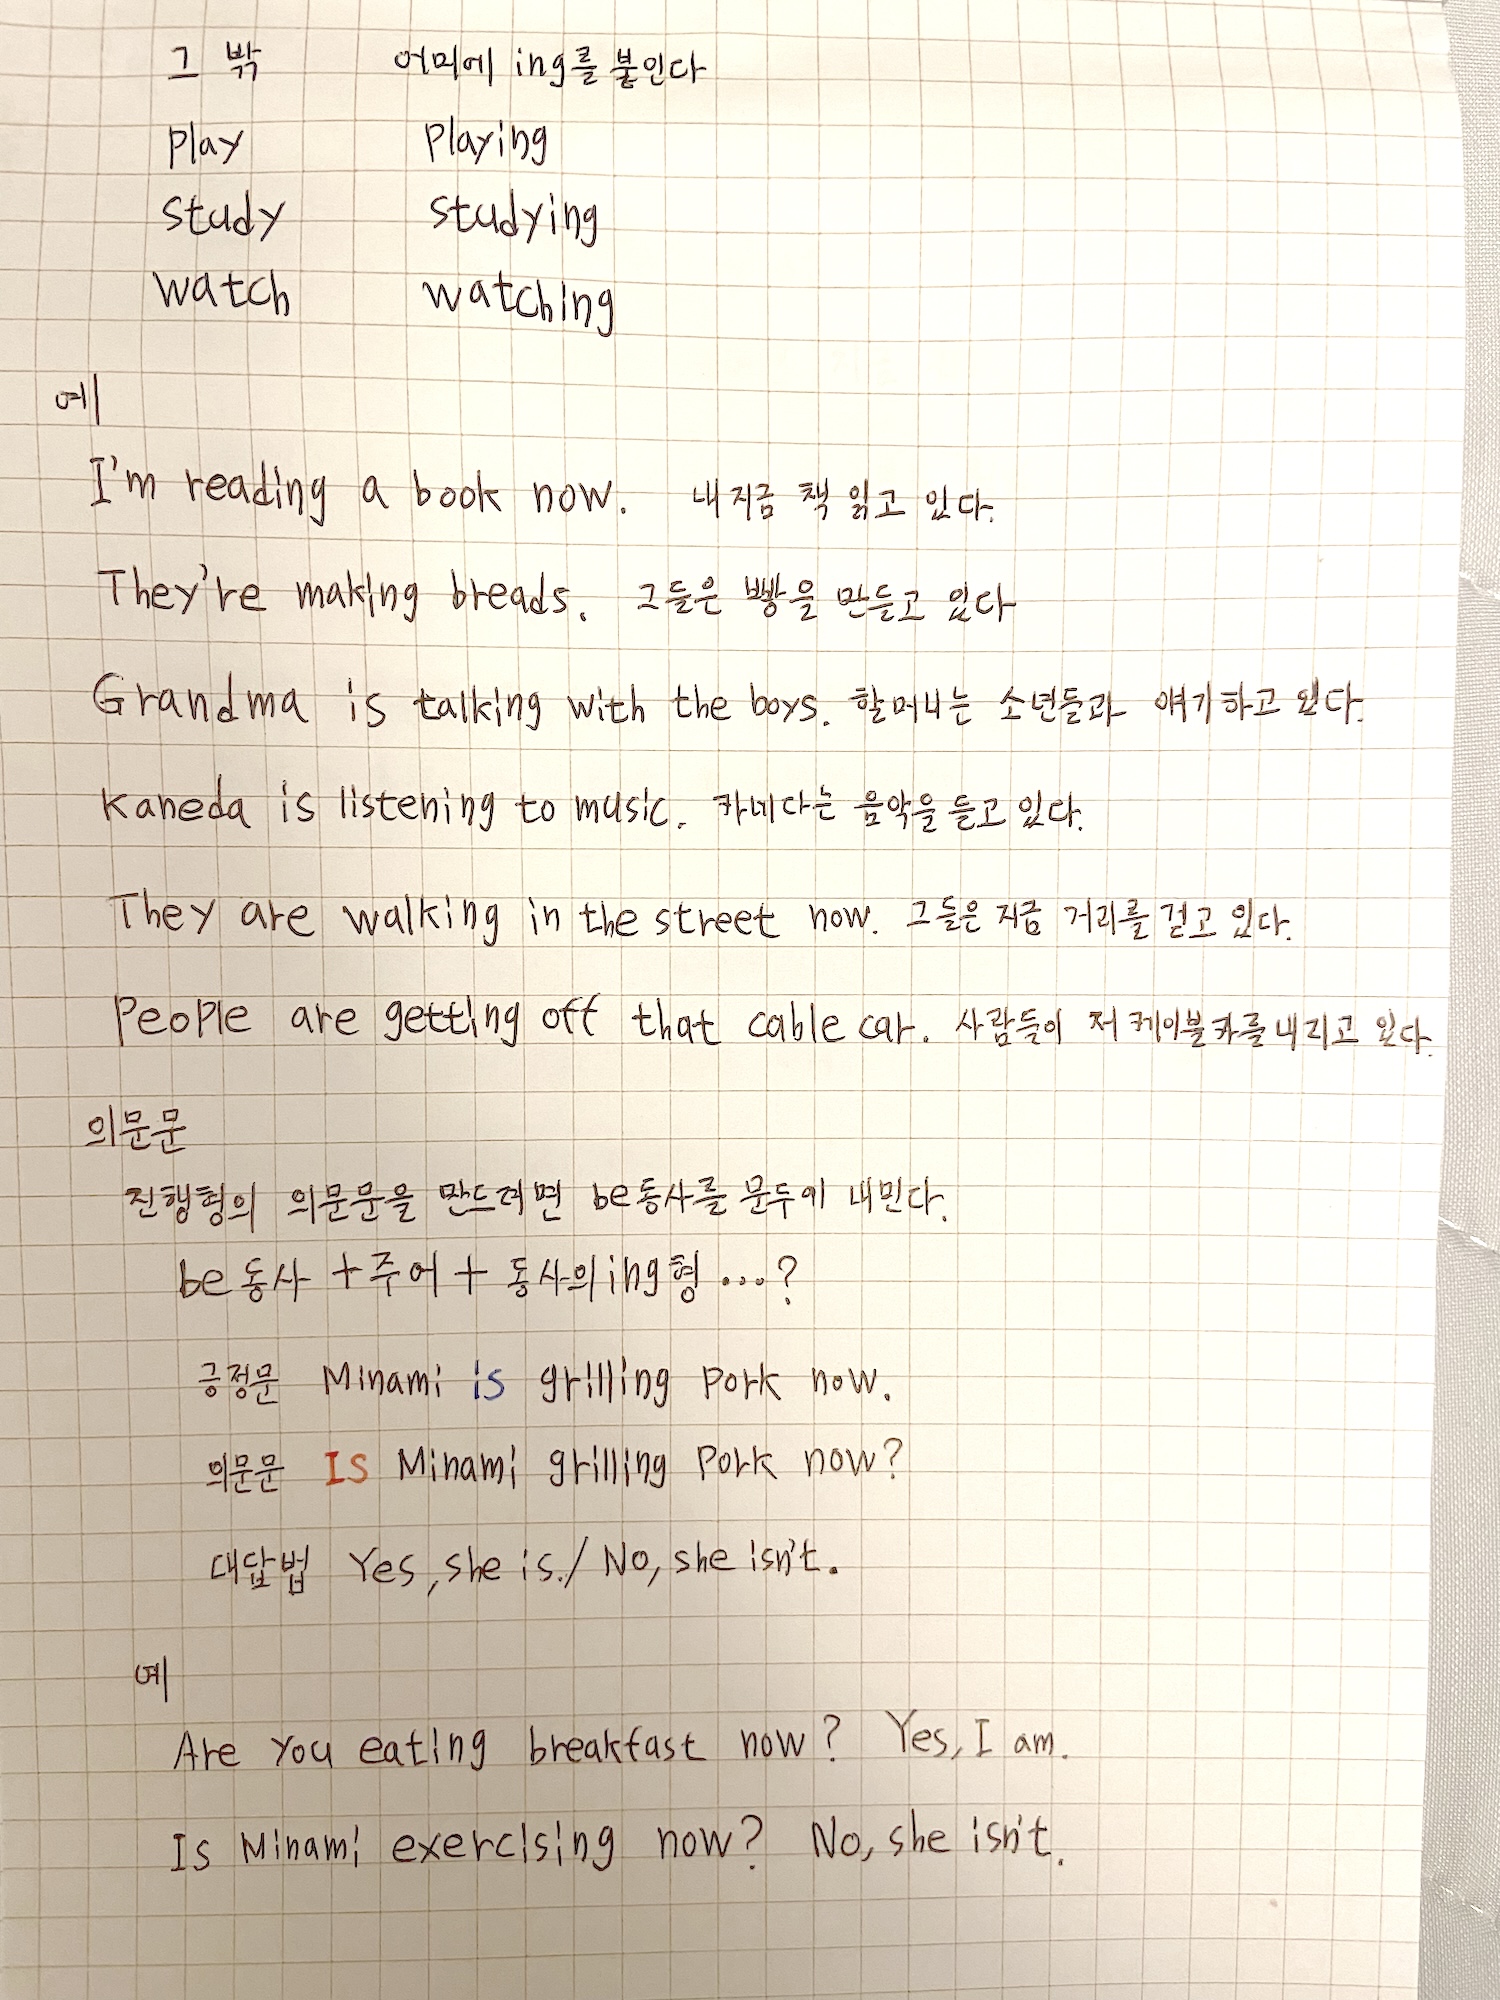 그 밖 어미에 ing를 붙인다
play playing
study studying
watch watching
예
I'm reading a book now. 내 지금 책 읽고 있다.
They're making breads. 그들은 빵을 만들고 있다
Grandma is talking with the boys. 할머니는 소년들과 얘기하고 있다.
Kaneda is listening to music. 카네다는 음악을 듣고 있다.
They are walking in the street now. 그들은 지금 거리를 걷고 있다.
People are getting off that cable car. 사람들이 저 케이블카를 내리고 있다.
의문문
진행형의 의문문을 만드려면 be동사를 문두에 내민다.
be동사 + 주어 + 동사의 ing형 ...?
긍정문 Minami is grilling pork now.
의문문 Is Minami grilling pork now?
대답법 Yes, she is. / No, she isn't.
예
Are you eating breakfast now? Yes, I am.
Is Minami exercising now? No, she isn't.